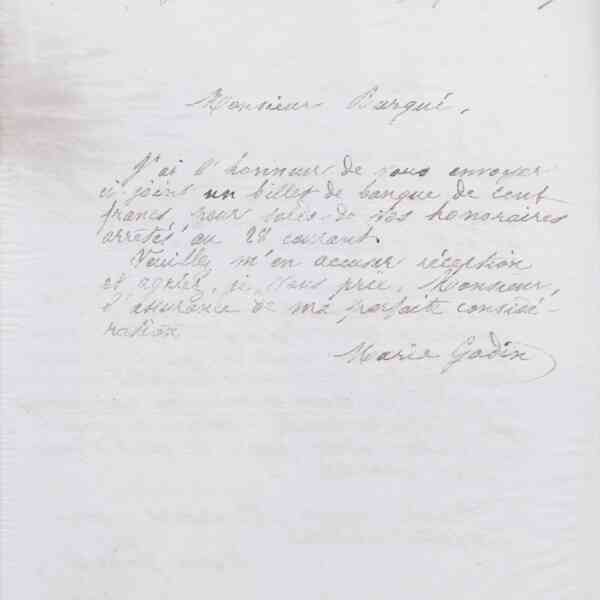 Monsieur Barqué,
J'ai l'honneur de vous envoyer
ci joint un billet de banque de cent
francs pour solde de vos honoraires
arrêtés au 28 courant.
Veuillez m'en accuser réception
et agréer, je vous prie, Monsieur,
l'assurance de ma parfaite considé-
ration
Marie Godin